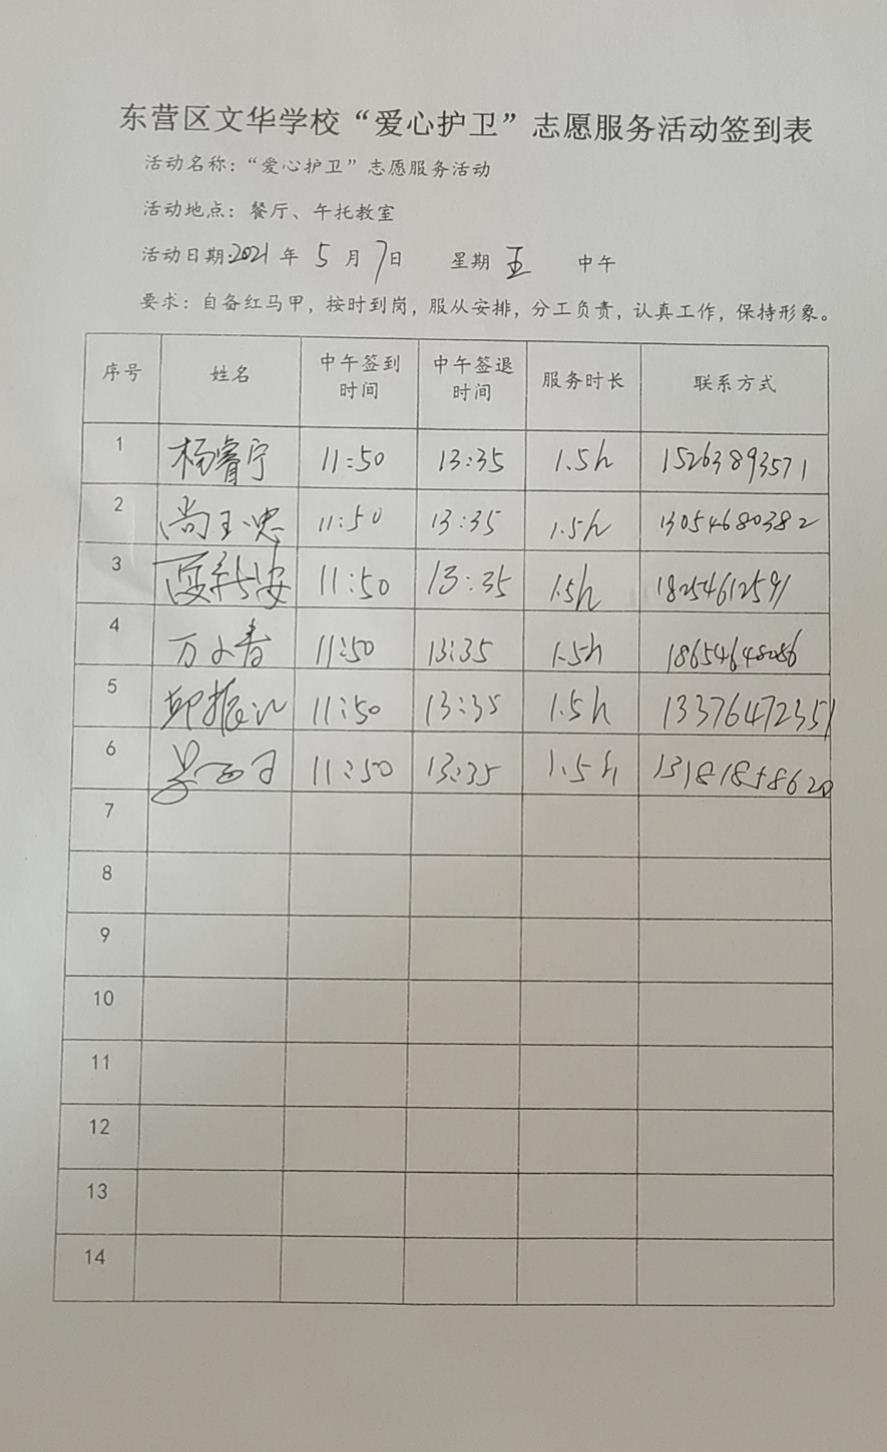 东营区文华学校“爱心护卫”志愿服务活动签到表
活动名称：“爱心护卫”志愿服务活动
活动地点：餐厅、午托教室
活动日期:2021 年 5 月 7日 星期 五 中午
要求：自备红马甲，按时到岗，服从安排，分工负责，认真工作，保持形象。
序号 姓名 中午签到时间 中午签退时间 服务时长 联系方式
1 杨睿宁 11:50 13:35 1.5h 15263893571
2 尚玉忠 11:50 13:35 1.5h 13054680382
3 11:50 13:35 1.5h 18254612591
4 万文春 11:50 13:35 1.5h 18654648086
5 11:50 13:35 1.5h 13376472351
6 11:50 13:35 1.5h 13181858620
7
8
9
10
11
12
13
14